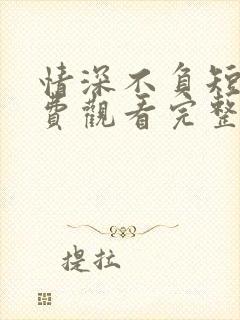 情深不負短
費觀看完整
提拉